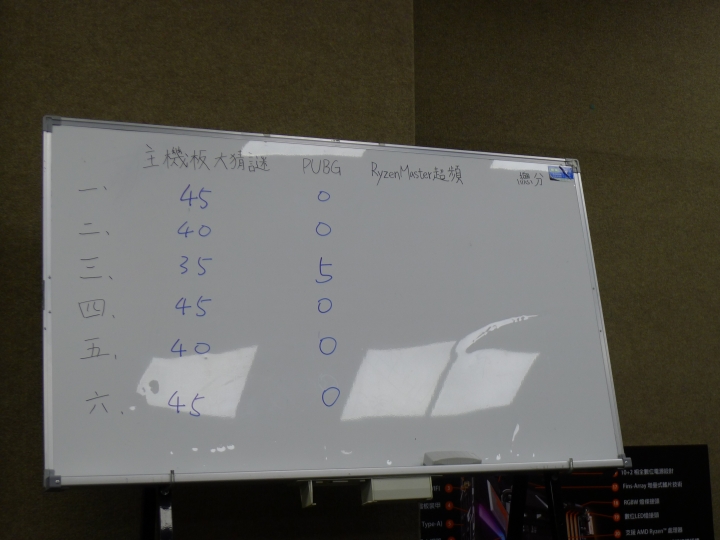 主機板大猜謎 PUBG RyzenMaster超頻 總分
一、 45 0
二、 40 0
三、 35 5
四、 45 0
五、 40 0
六、 45 0
16+2 相全數位電源設計
Fins-Array 堆疊式鰭片技術
RGBW 燈條接頭
數位LED燈接頭
支援 AMD Ryzen™ 處理器
Type-A)